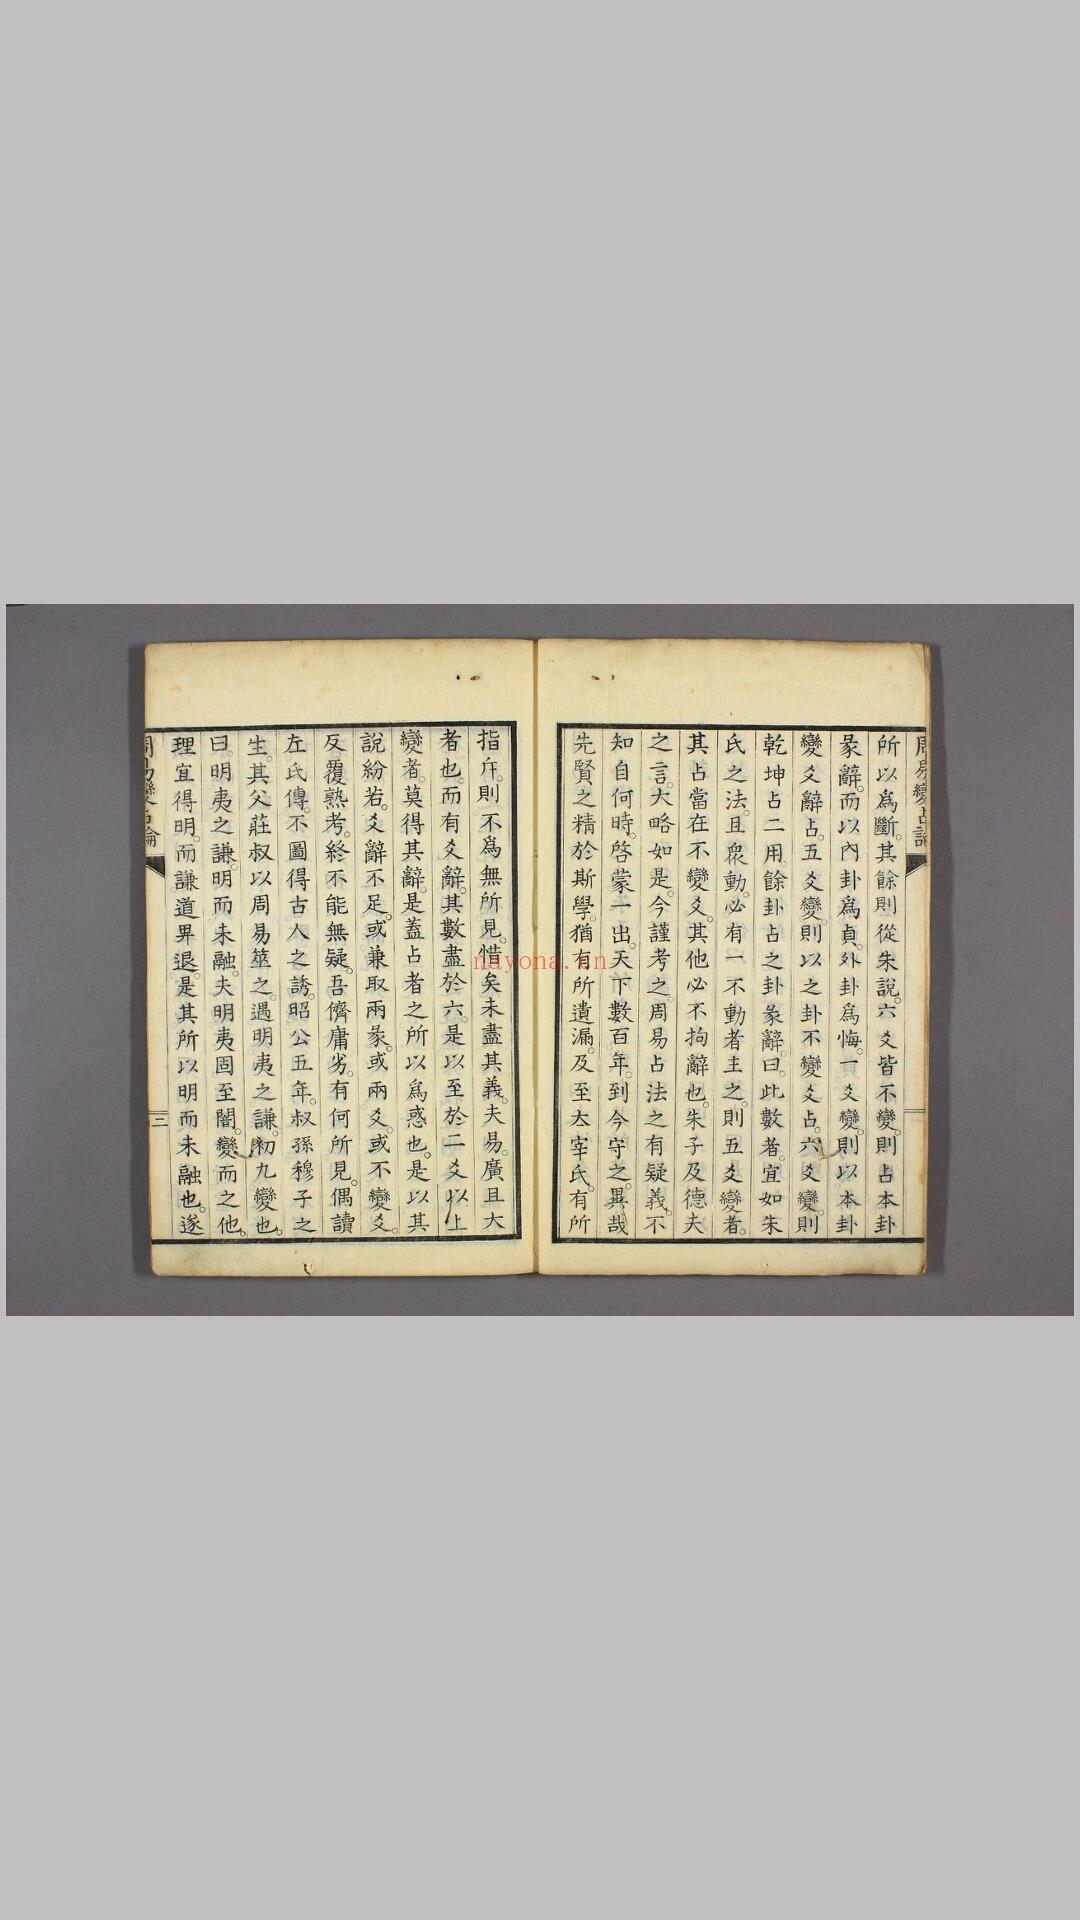 周易變占論
所以爲斷。其餘則從朱說。六爻皆不變。則占本卦
彖辭。而以內卦爲貞。外卦爲悔。一爻變。則以本卦
變爻辭占。五爻變。則以之卦不變爻占。六爻變。則
乾坤占二用。餘卦占之卦彖辭。曰。此數者。宜如朱
氏之法。且衆動。必有一不動者主之。則五爻變者。
其占當在不變爻。其他必不拘辭也。朱子及德夫
之言。大略如是。今謹考之。周易占法之有疑義。不
知自何時。啓蒙一出。天下數百年。到今守之。異哉
先賢之精於斯學。猶有所遺漏。及至太宰氏。有所
指斥。則不爲無所見。惜矣未盡其義。夫易。廣且大
者也。而有爻辭。其數盡於六。是以至於二爻以上
變者。莫得其辭。是蓋占者之所以爲惑也。是以其
說紛若。爻辭不足。或兼取兩彖。或兩爻。或不變爻。
反覆熟考。終不能無疑。吾儕庸劣。有何所見。偶讀
左氏傳。不圖得古人之誘。昭公五年。叔孫穆子之
生。其父莊叔以周易筮之。遇明夷之謙。初九變也。
曰。明夷之謙。明而未融。夫明夷固至闇。變而之他。
理宜得明。而謙道畀退。是其所以明而未融也。遂
周易變占論
三
nayona.cn